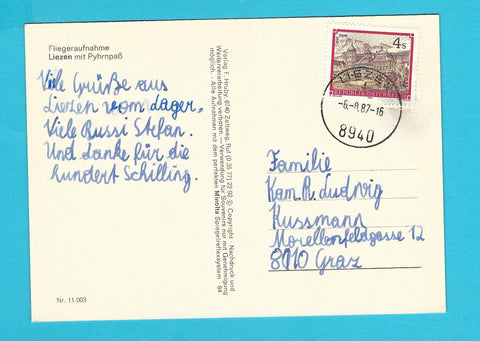 Fliegeraufnahme
Liezen mit Pyhrnpaß
Viele Grüße aus
Liezen vom Lager.
Viele Bussi Stefan.
Und danke für die
hundert Schilling.
Nr. 11.003
Verlag F. Hruby, 8740 Zeltweg, Ruf (0 35 77) 22 92 © Copyright Nachdruck und
Weiterverarbeitung verboten. — Verwendung für Souvenirs nur mit Genehmigung
möglich. - Alle Aufnahmen mit dem perfekten Minolta Spiegelreflexsystem - 84
4 S
REPUBLIK ÖSTERREICH
LIEZEN
-6.-8.87-16
8940
Familie
Kam. R. Ludwig
Kussmann
Morellenfeldgasse 12
8010 Graz